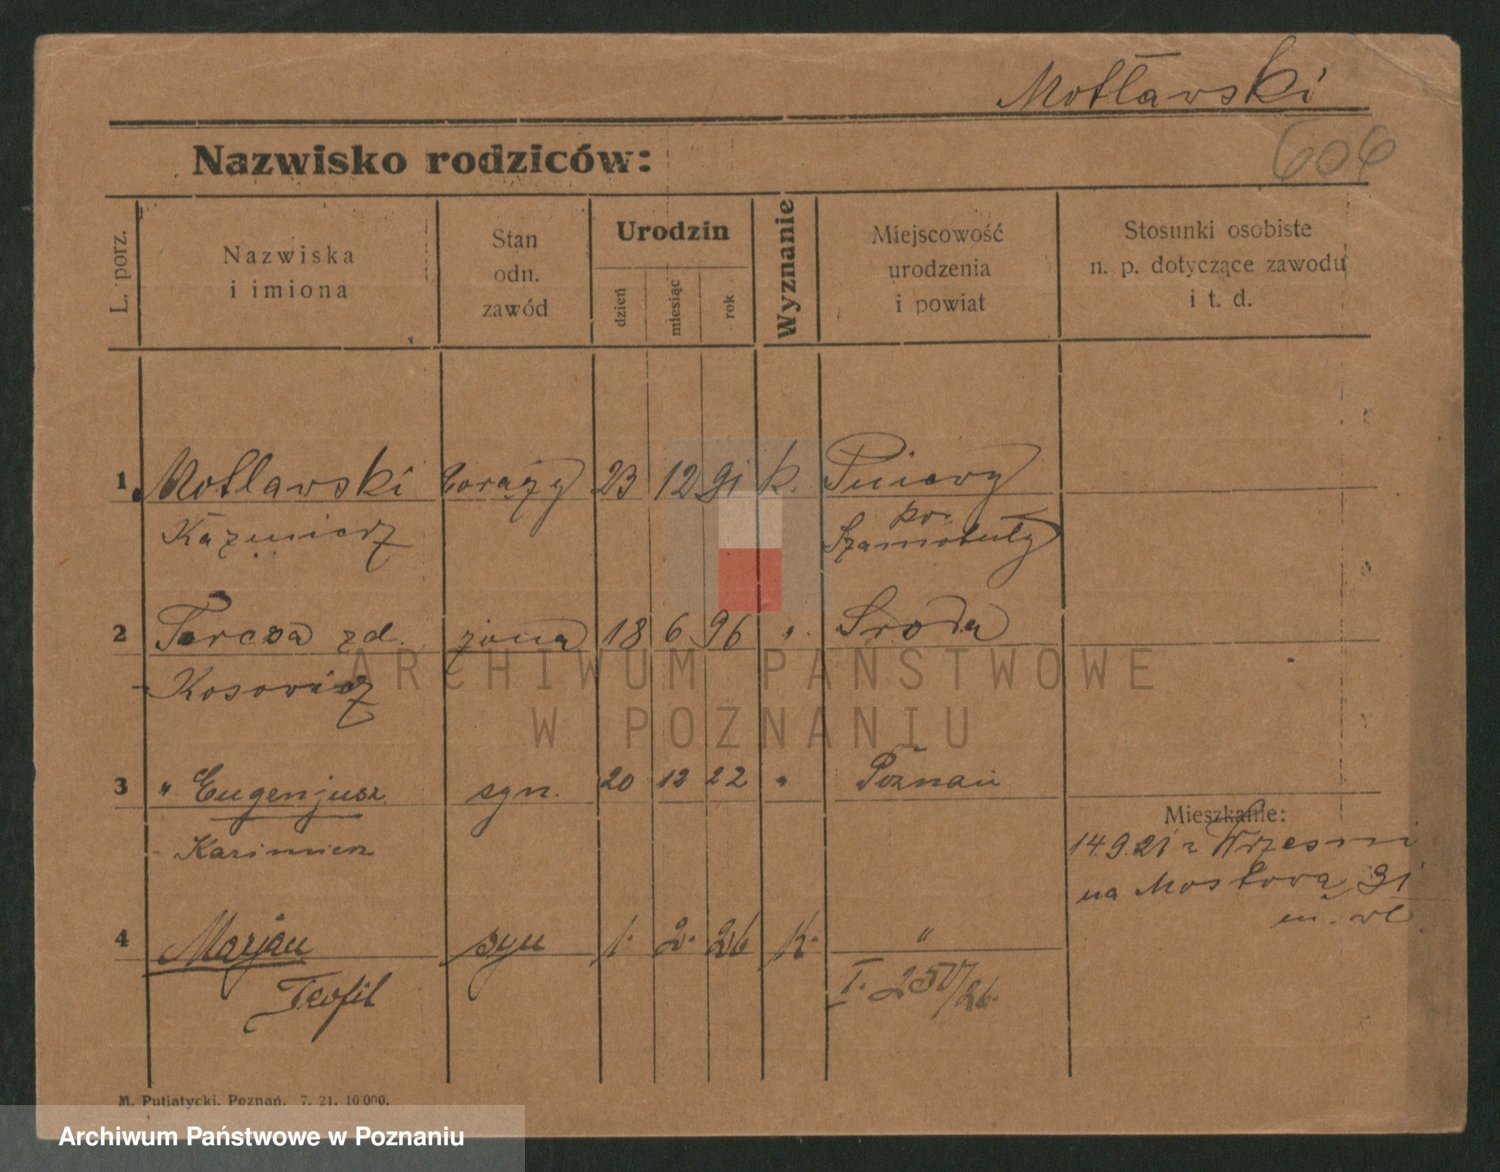 Motławski
606
Nazwisko rodziców:
L. porz.
Nazwiska
i imiona
Stan
odn.
zawód
Urodzin
dzień
miesiąc
rok
Wyznanie
Miejscowość
urodzenia
i powiat
Stosunki osobiste
n. p. dotyczące zawodu
i t. d.
1 Motławski 23 12 91 k. Pniewy
Kaźmierz po. Szamotuły
2 zd. żona 18 6 96 " Środa
Kosowicz
3 " Eugenjusz syn. 20 12 22 " Poznań
Kazimierz
Mieszkanie:
14.9.21 z Wrześni
na Mostową 31
4 Marjan syn 1. 2. 26 k. "
Teofil I. 250/26.
ARCHIWUM PAŃSTWOWE
W POZNANIU
M. Putiatycki, Poznań. 7. 21. 10 000.
Archiwum Państwowe w Poznaniu